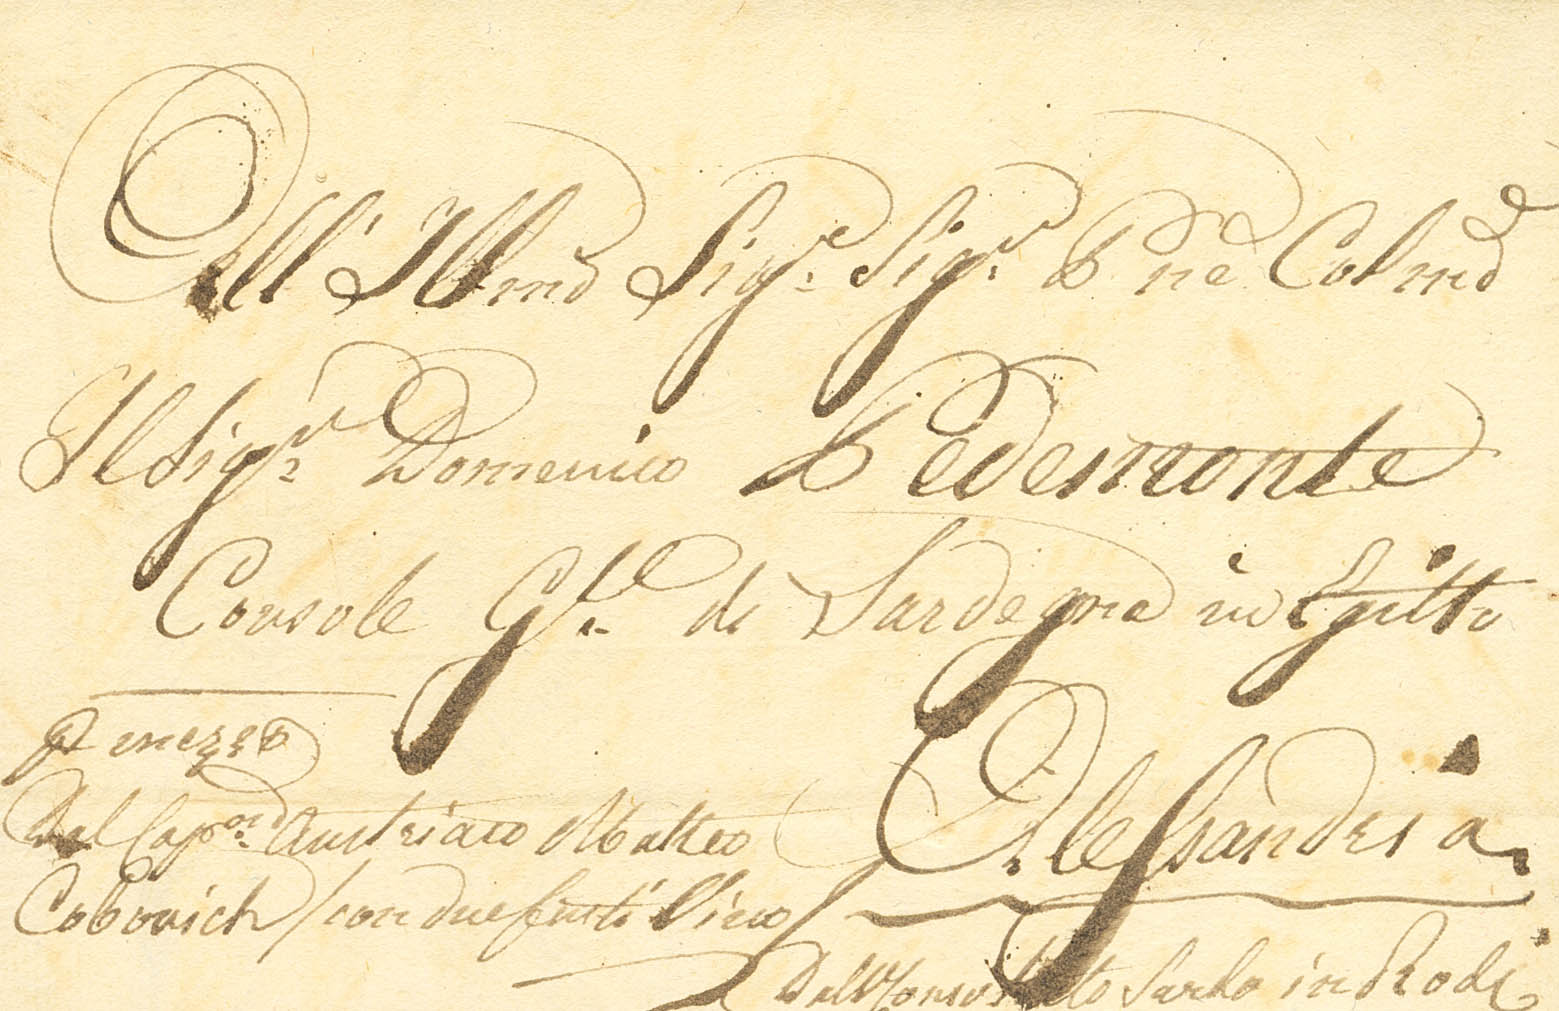 All' Illmo Sigre. Sigr. Pne Colmo
Il Sigr. Domenico Pedemonte
Console Gle. di Sardegna in Egitto
Alessandria.
P mezzo
Dal Capno. Austriaco Matteo
Cobovich / con due fusti Vino /
Dal Consolato Sardo in Rodi